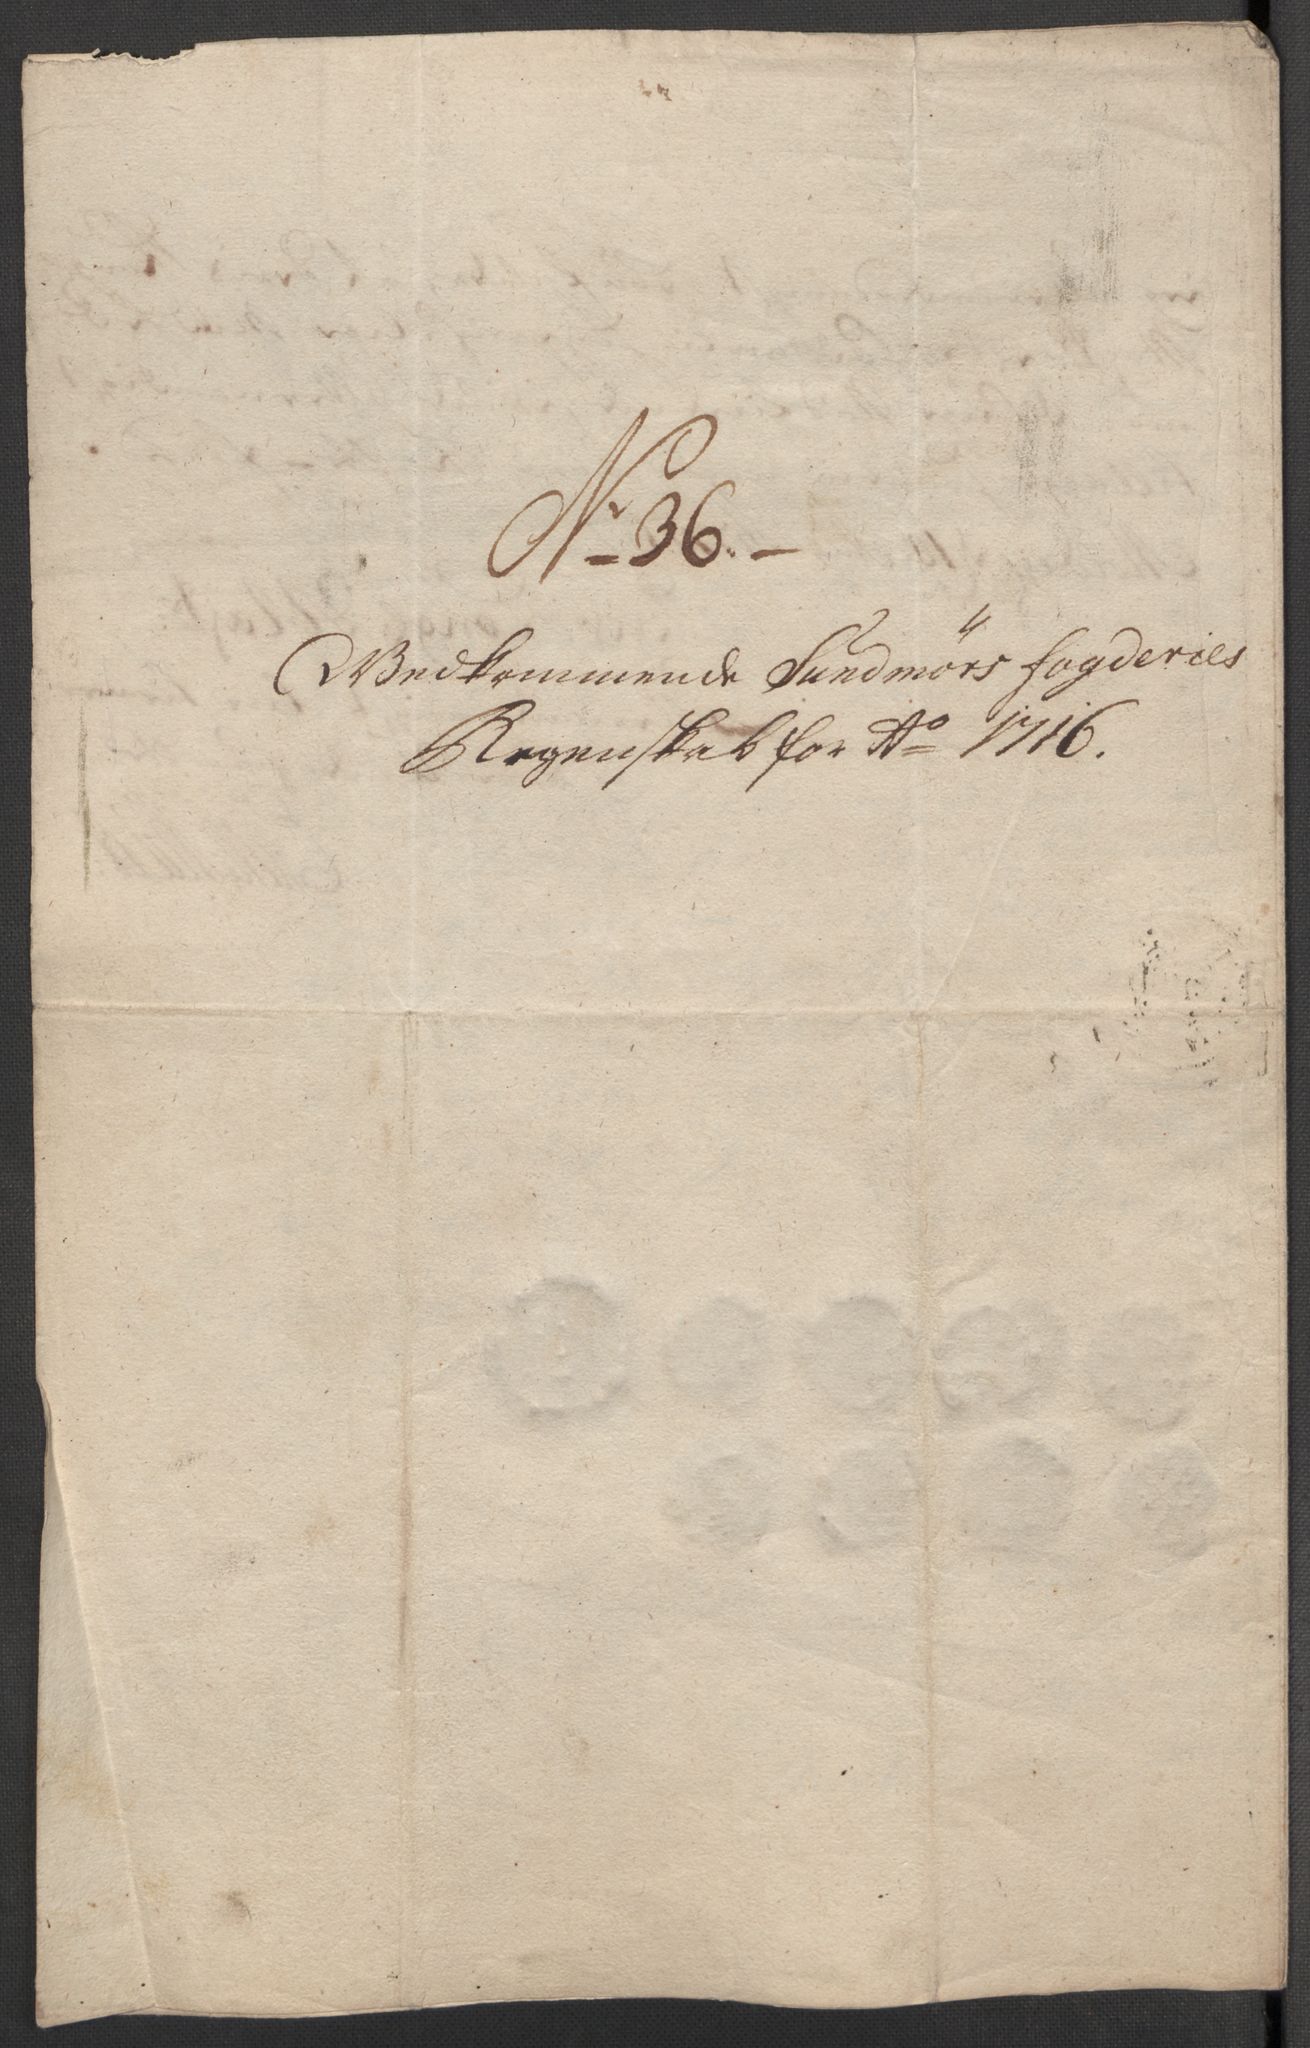 No 36.
Vedkommende Sundmörs fogderies
Regenskab for Ao 1716.